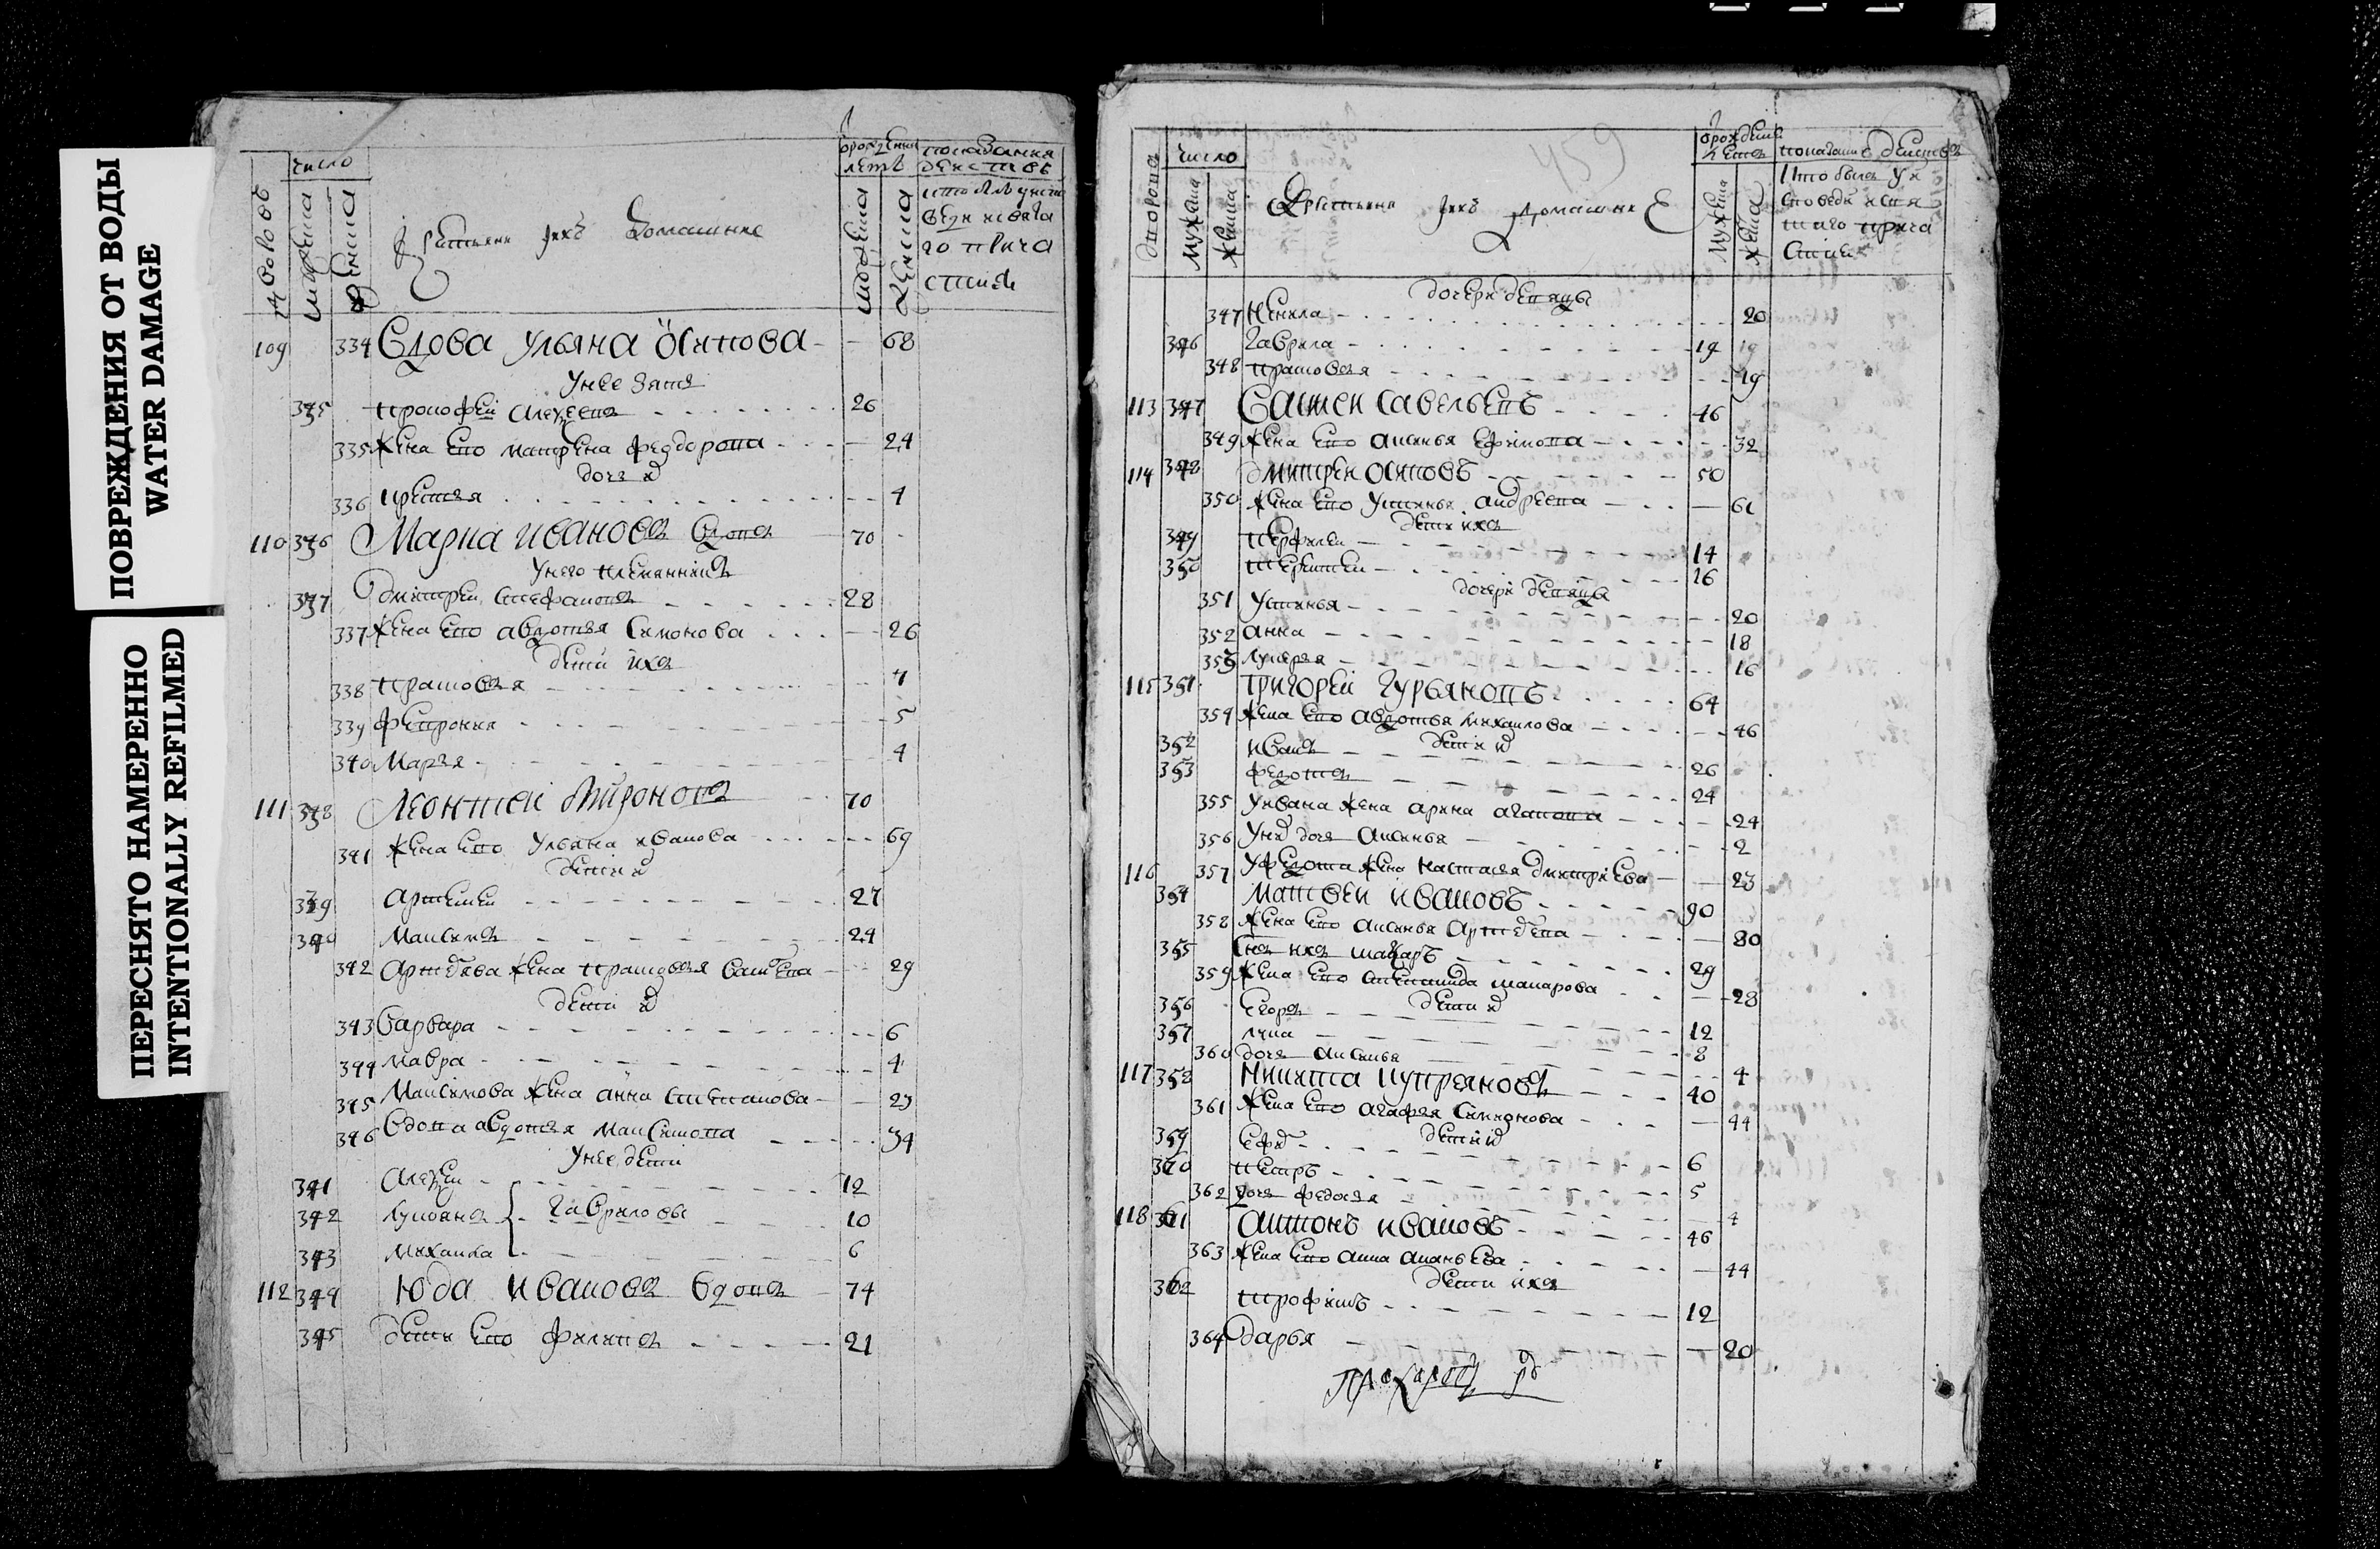 ПОВРЕЖДЕНИЯ ОТ ВОДЫ
WATER DAMAGE
ПЕРЕСНЯТО НАМЕРЕННО
INTENTIONALLY REFILMED
дворовъ
число
мужеска
женска
Крестьяне ихъ домашние
от рождения летъ
мужеска
женска
показание действ
109 334 Вдова Ульяна Осипова 68
У нее зять
335 Прокофей Алексеевъ 26
335 Жена его Матрена Федорова 24
дочь и
336 Ирина 4
110 336 Марка Ивановъ вдовъ 70
У него племянникъ
337 Дмитреи Стефановъ 28
337 Жена его Авдотья Симонова 26
дети ихъ
338 Прасковья 7
339 Фетрония 5
340 Марья 4
111 338 Леонтеи Мироновъ 70
341 Жена его Ульяна Иванова 69
дети и
339 Артемеи 27
340 Максимъ 24
342 Артемьева жена Прасковья 29
дети и
343 Варвара 6
344 Мавра 4
345 Максимова жена Анна Степанова 23
346 Вдова Авдотья Максимова 34
У нее дети
341 Алексеи 12
342 Лукьянъ Гавриловы 10
343 Михаила 6
112 344 Юда Ивановъ вдовъ 74
345 дети его Филипъ 21
459
двороваго
число
мужеска
женска
Крестьяне ихъ домашние
от рождения летъ
мужеска
женска
показание действа
Кто былъ у исповеди и святаго причастия
дочери девицы
347 Ненила 20
346 Гаврила 19 19
348 Прасковья 19
113 347 Самсон Савельевъ 46
349 Жена его Аксинья Ефимова 32
114 348 Дмитреи Осиповъ 50
350 Жена его Устинья Андреева 61
дети ихъ
349 Перфилеи 14
350 Терентеи 16
дочери девицы
351 Устинья 20
352 Анна 18
353 Лукерья 16
115 351 Григореи Гурьяновъ 64
354 Жена его Авдотья Михаилова 46
дети и
352 Иванъ 26
353 Федотъ 24
355 У Ивана жена Арина Агапова 24
356 У них дочь Аксинья 2
116 357 У Федота жена Настасья Дмитриева 23
354 Матвеи Ивановъ 90
358 Жена его Аксинья Артемева 80
355 Сынъ ихъ Макаръ 29
359 Жена его Степанида Макарова 28
дети и
356 Егоръ 12
357 Лука 8
360 дочь Аксинья 4
117 358 Никита Куприяновъ 40
361 Жена его Агафья Симионова 44
дети и
359 Ефи 6
360 Петръ 5
362 дочь Федосья 4
118 361 Антонъ Ивановъ 46
363 Жена его Анна Ананьева 44
дети ихъ
362 Трофимъ 12
364 Дарья 20